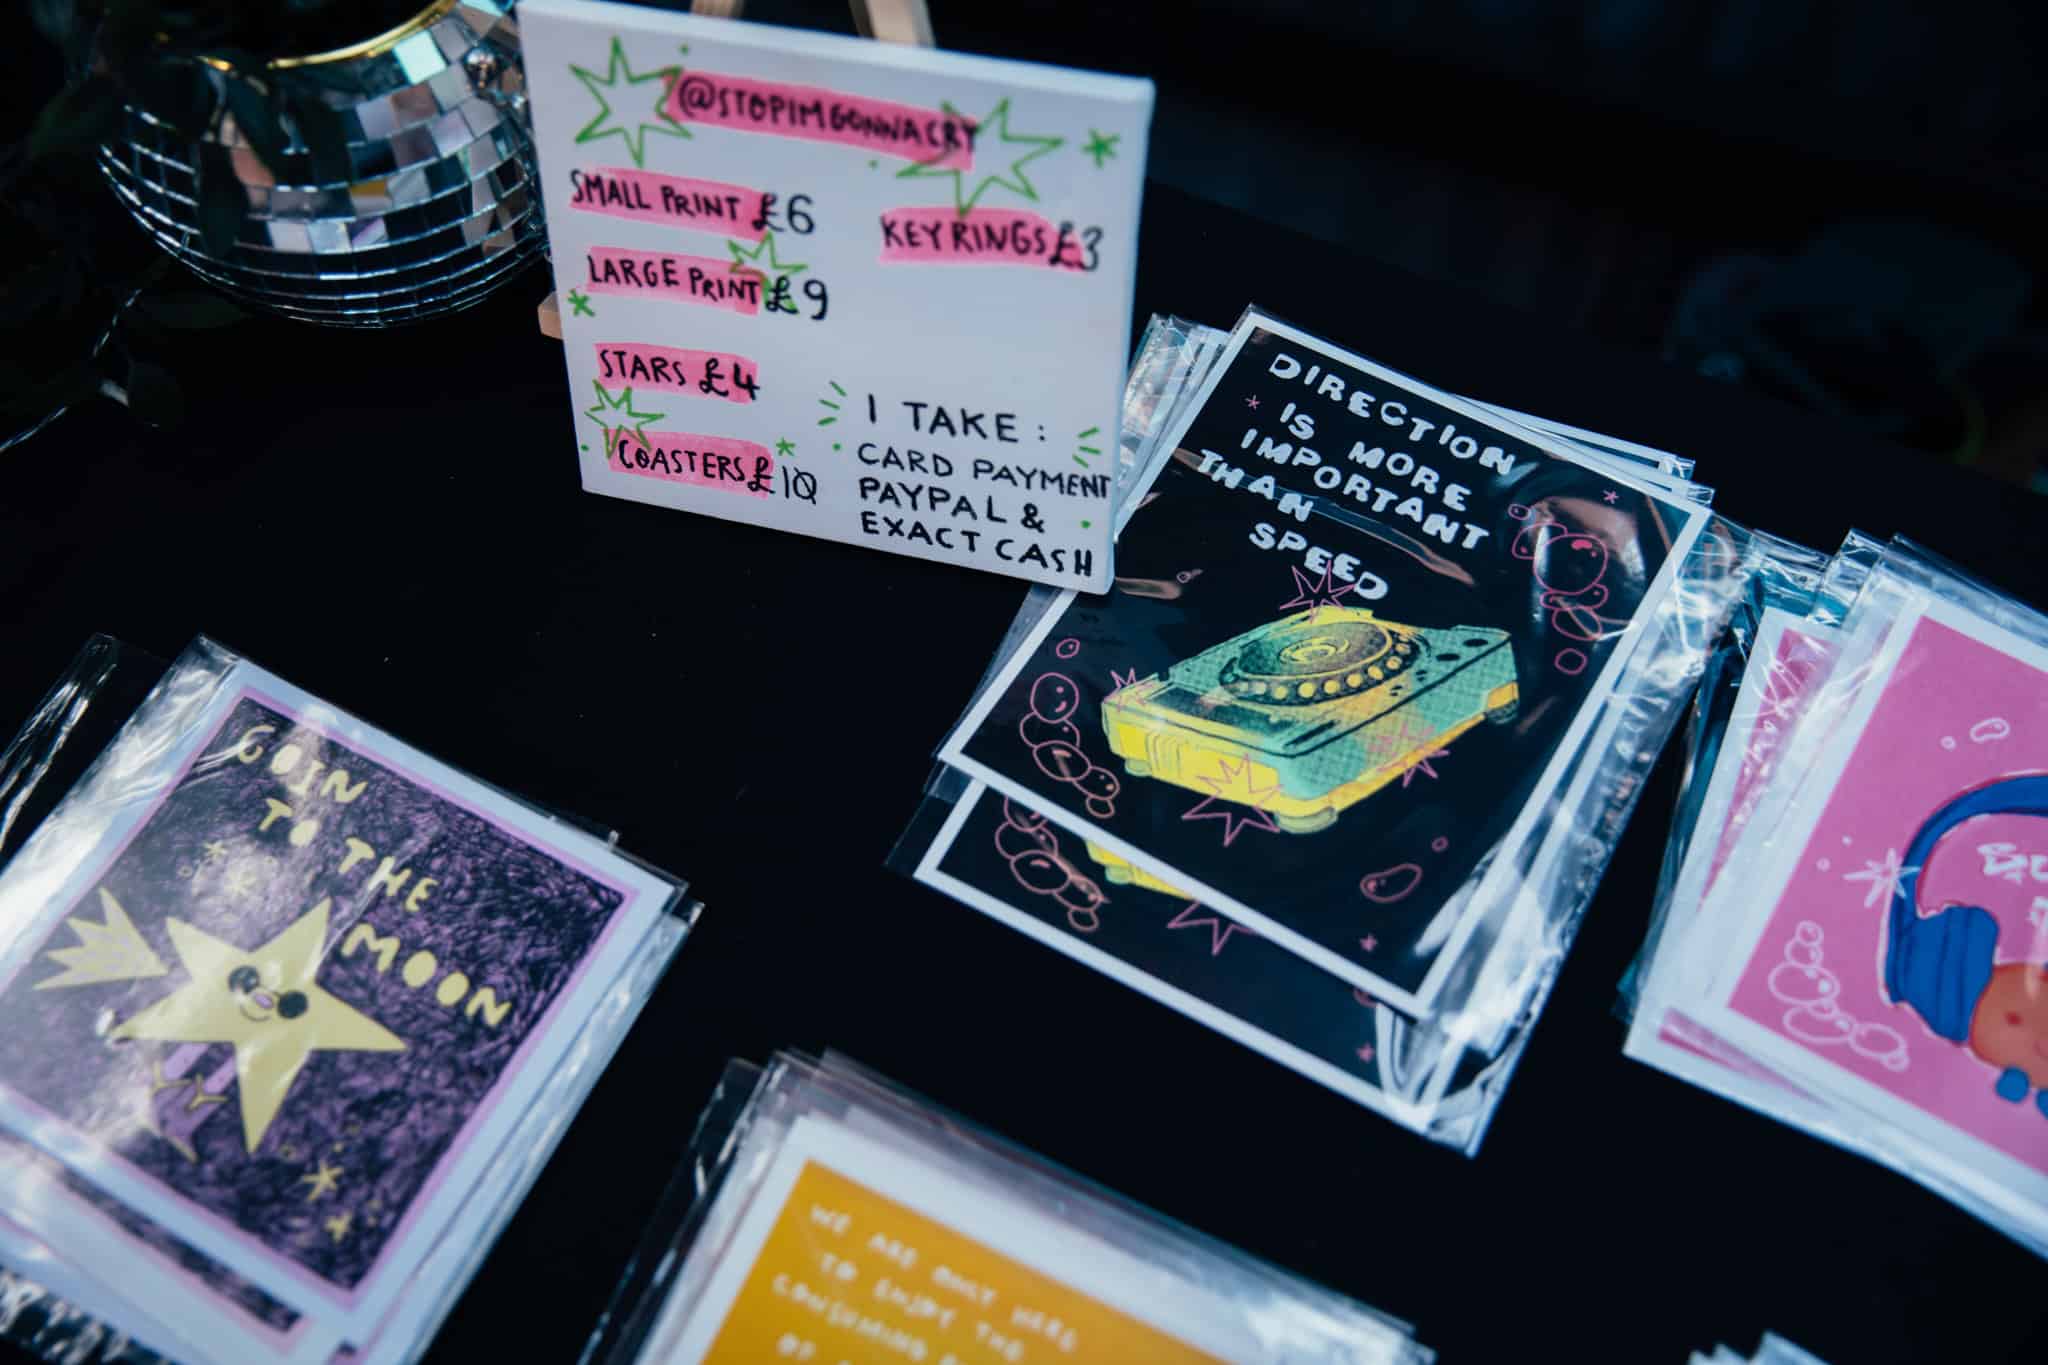 @STOPIMGONNACRY
SMALL PRINT £6
KEYRINGS £3
LARGE PRINT £9
STARS £4
COASTERS £10
I TAKE:
CARD PAYMENT
PAYPAL &
EXACT CASH
DIRECTION
IS MORE
IMPORTANT
THAN
SPEED
GOIN
TO THE
MOON
WE ARE ONLY HERE
TO ENJOY THE
CONSUMING
OF